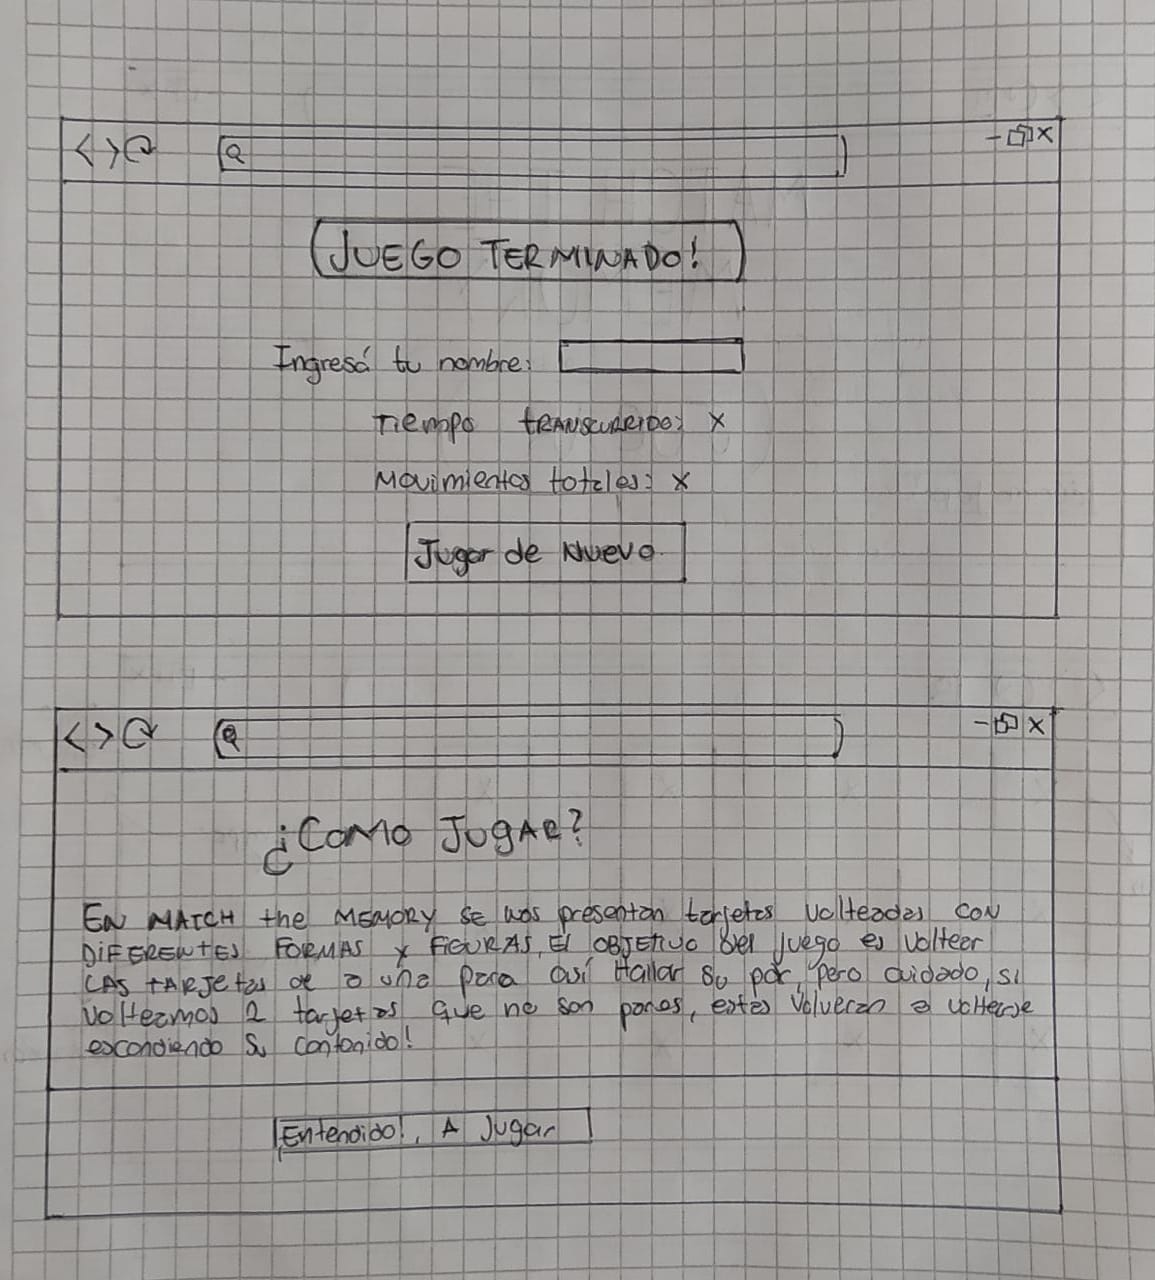 JUEGO TERMINADO!
Ingresá tu nombre:
Tiempo TRANSCURRIDO: X
Movimientos totales: X
Jugar de Nuevo
¿COMO JUGAR?
EN MATCH the MEMORY SE nos presentan tarjetas volteadas CON
DIFERENTES FORMAS Y FIGURAS, El OBJETIVO Del juego es voltear
LAS TARJetas de a una para así Hallar su par, pero cuidado, si
volteamos 2 tarjetas que no son pares, estas volveran a voltearse
escondiendo su contenido!
Entendido!, A Jugar